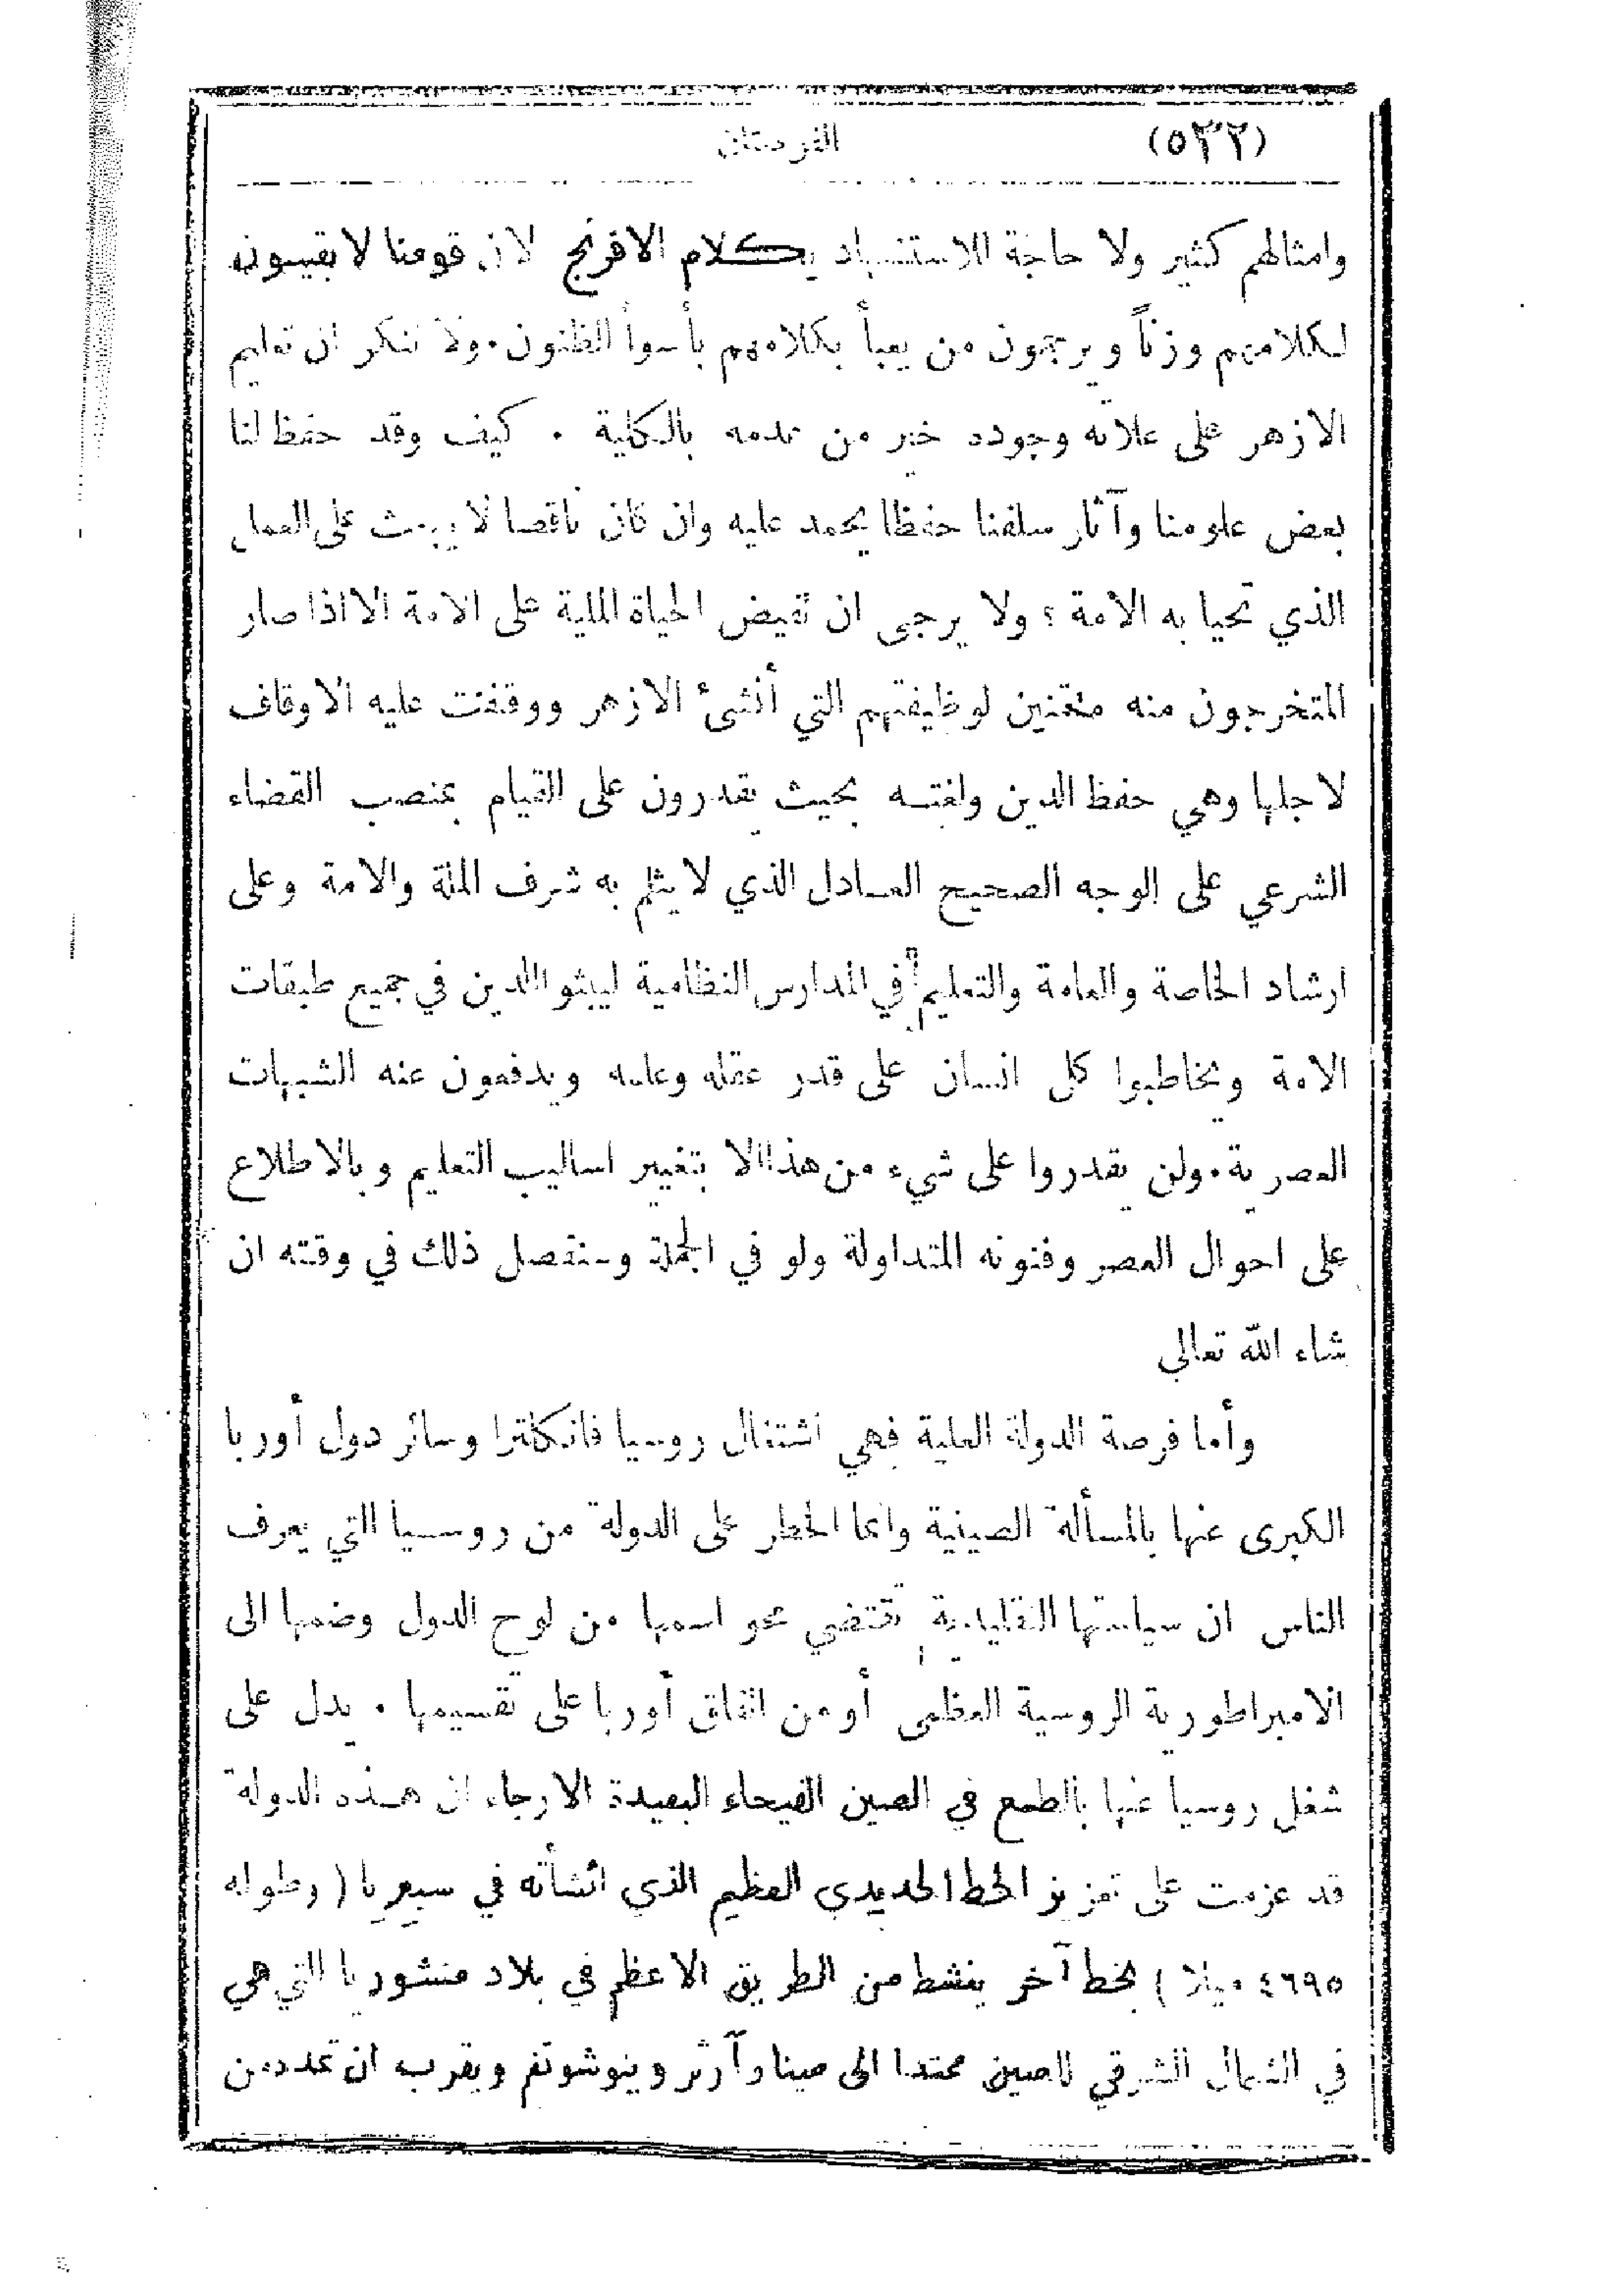 (٥٣٢) الفرصتان
وامثالهم كثير ولا حاجة للاستشهاد بكلام الافرنج لان قومنا لا يقيمون
لكلامهم وزناً ويرجمون من يعبأ بكلامهم بأسوأ الظنون. ولا ننكر ان تعليم
الازهر على علاته وجوده خير من عدمه بالكلية . كيف وقد حفظ لنا
بعض علومنا وآثار سلفنا حفظا يحمد عليه وان كان ناقصا لا يبعث على العمل
الذي تحيا به الامة ؛ ولا يرجى ان تفيض الحياة الملية على الامة الا اذا صار
المتخرجون منه متقنين لوظيفتهم التي أنشئ الازهر ووقفت عليه الاوقاف
لاجلها وهي حفظ الدين ولغته بحيث يقدرون على القيام بمنصب القضاء
الشرعي على الوجه الصحيح العادل الذي لا يثلم به شرف الملة والامة وعلى
ارشاد الخاصة والعامة والتعليم في المدارس النظامية ليبثوا الدين في جميع طبقات
الامة ويخاطبوا كل انسان على قدر عقله وعلمه ويدفعون عنه الشبهات
العصرية. ولن يقدروا على شيء من هذا الا بتغيير اساليب التعليم وبالاطلاع
على احوال العصر وفنونه المتداولة ولو في الجملة وسنفصل ذلك في وقته ان
شاء الله تعالى
وأما فرصة الدولة العلية فهي اشتغال روسيا فانكلترا وسائر دول أوربا
الكبرى عنها بالمسألة الصينية وانما الخطر على الدولة من روسيا التي يعرف
الناس ان سياستها التقليدية تقتضي محو اسمها من لوح الدول وضمها الى
الامبراطورية الروسية العظمى أو من اتفاق أوربا على تقسيمها . يدل على
شغل روسيا عنها بالطمع في الصين الفيحاء البعيدة الارجاء ان هذه الدولة
قد عزمت على تعزيز الخط الحديدي العظيم الذي انشأته في سيبيريا (وطوله
٤٦٩٥ ميلا) بخط آخر ينشط من الطريق الاعظم في بلاد منشوريا التي هي
في الشمال الشرقي للصين ممتدا الى مينا وآرثر وينوشونغ ويقرب ان تمد من